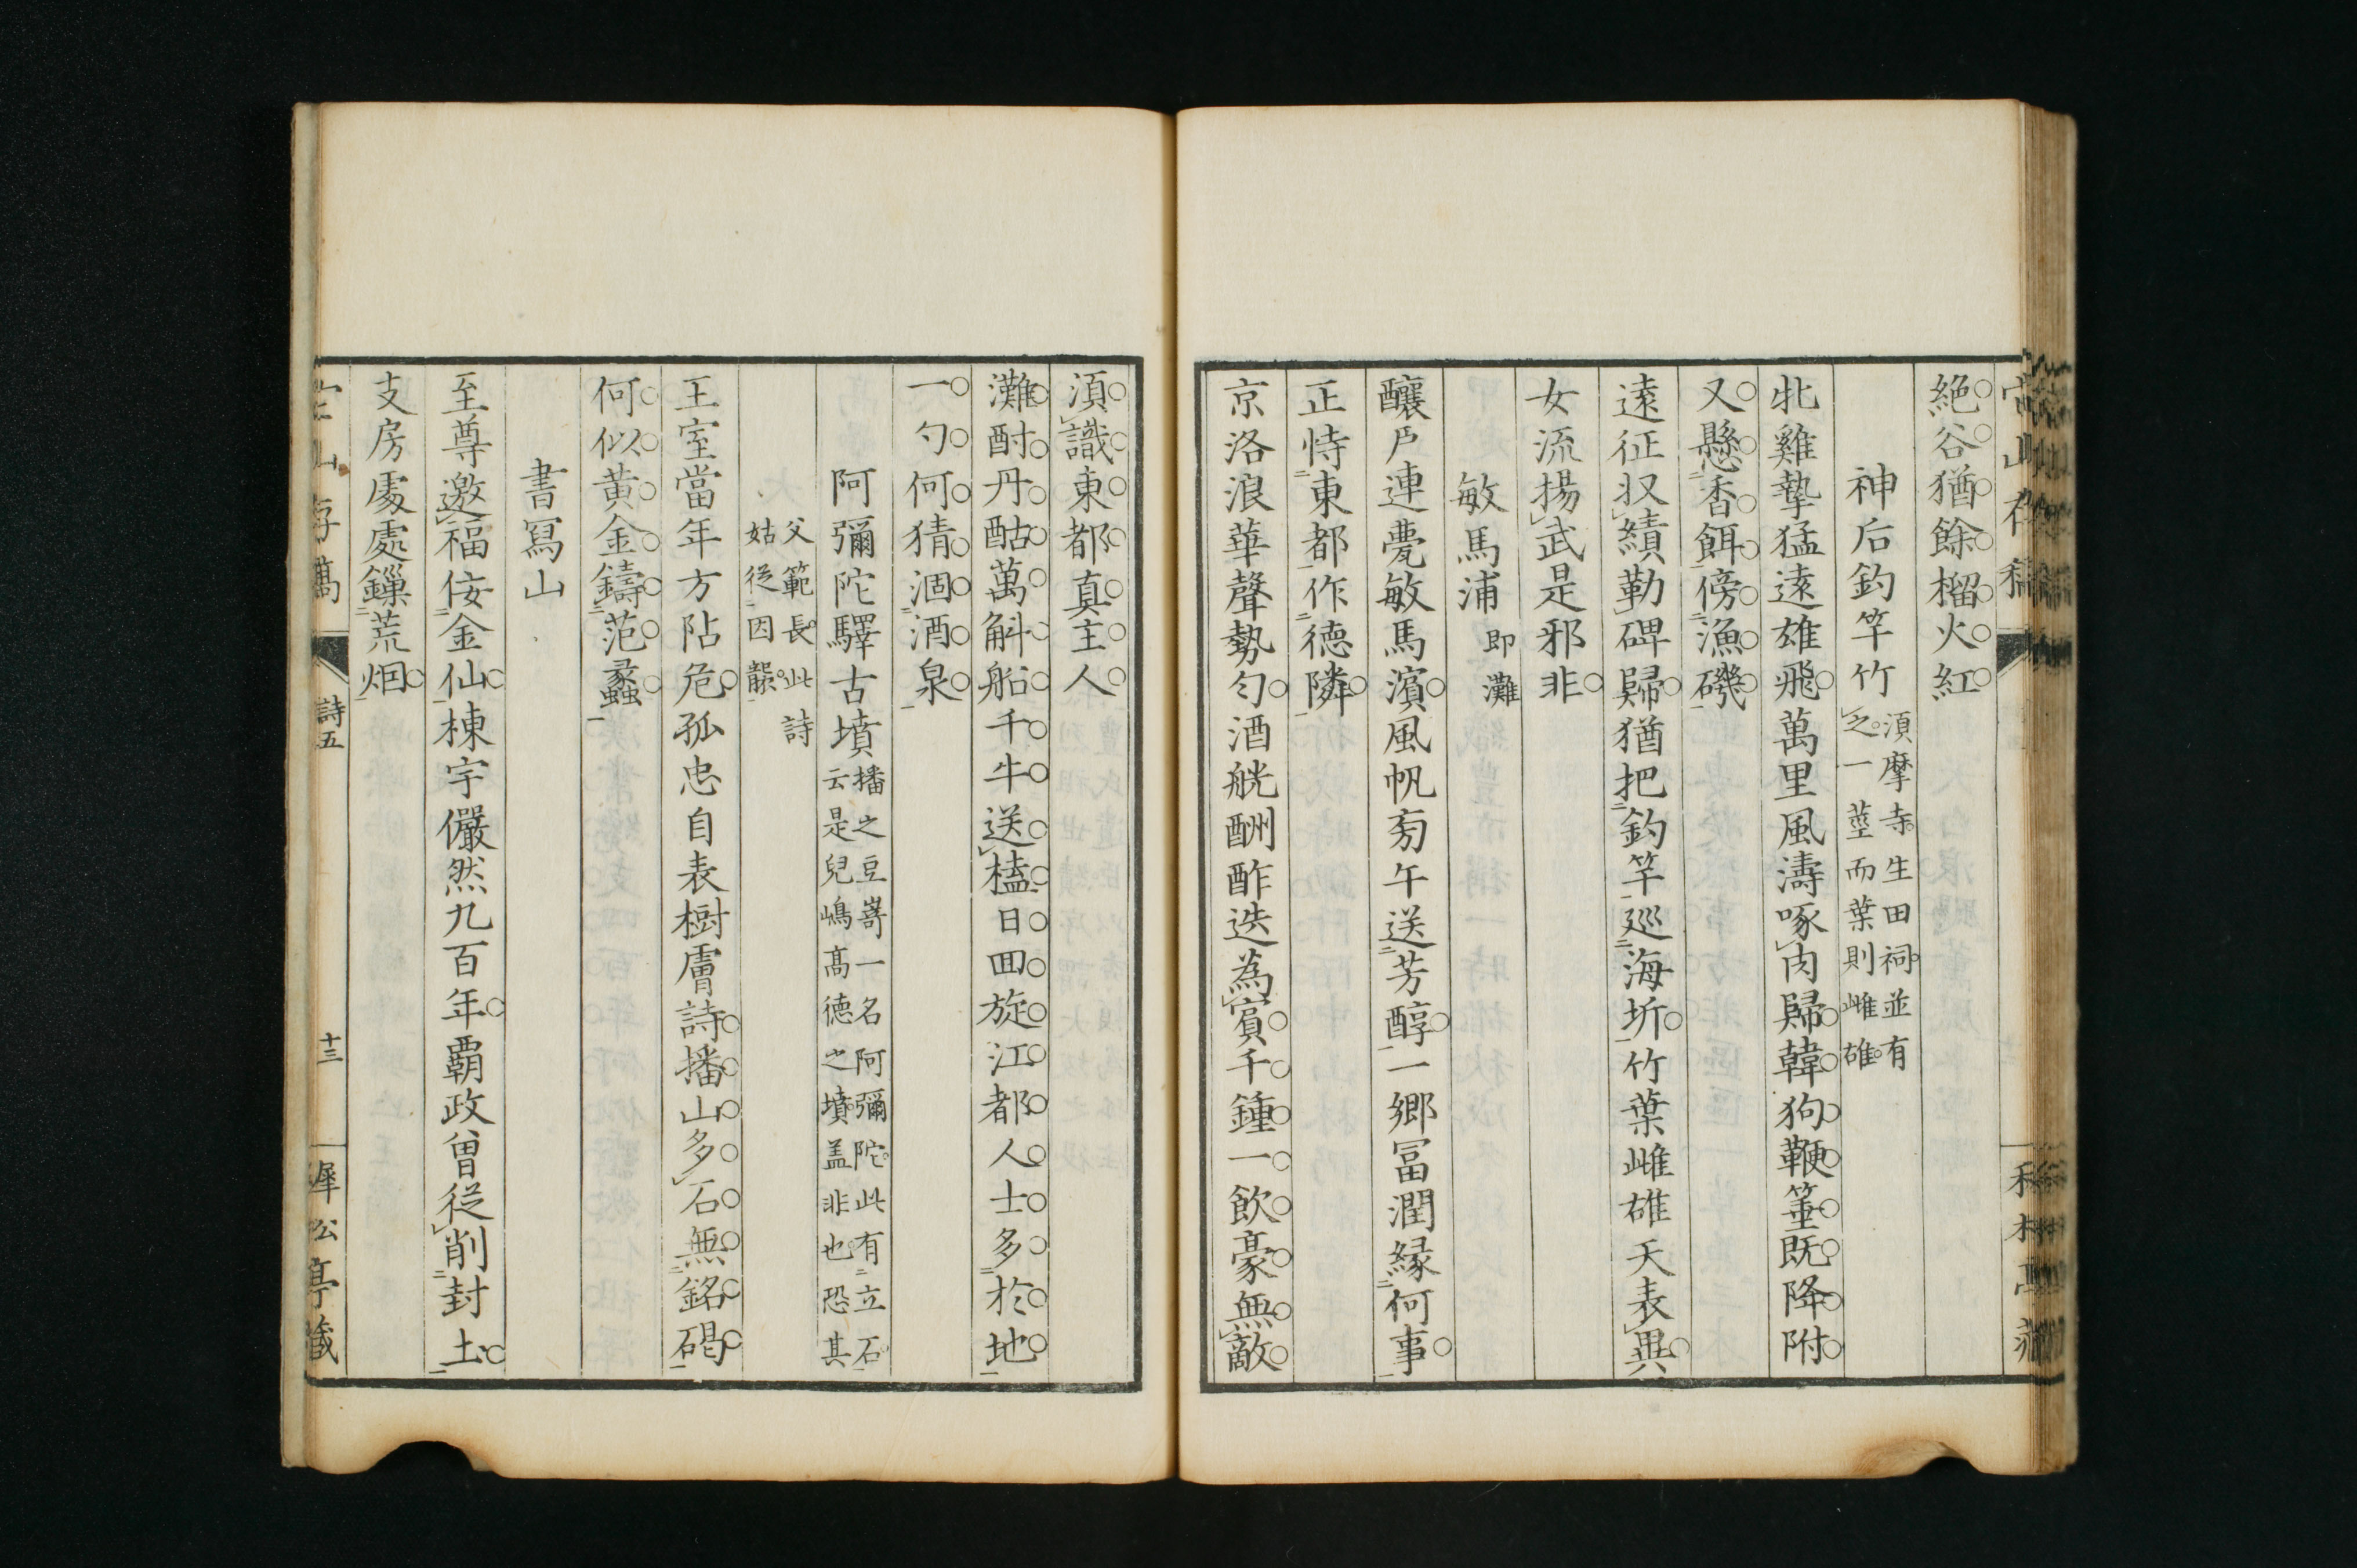 絶谷猶餘榴火紅
神后釣竿竹 須摩寺生田祠並有
之一莖而葉則雌雄
牝雞摯猛遠雄飛萬里風濤啄肉歸韓狗鞭箠既降附
又懸香餌傍漁磯
遠征収績勒碑歸猶把釣竿巡海圻竹葉雌雄天表異
女流揚武是邪非
敏馬浦 即灘
釀戶連甍敏馬濱風帆旁午送芳醇一鄉冨潤緣何事
正恃東都作德隣
京洛浪華聲勢勻酒觥酬酢迭為賓千鍾一飲豪無敵
須識東都真主人
灘酎丹酤萬斛船千牛送榼日囬旋江都人士多於地
一勺何猜涸酒泉
阿彌陀驛古墳 播之豆嵜一名阿彌陀此有立石
云是兒嶋髙德之墳盖非也恐其
父範長此詩
姑從因襲
王室當年方阽危孤忠自表樹膚詩播山多石無銘碣
何似黃金鑄范蠡
書寫山
至尊邀福佞金仙棟宇儼然九百年覇政曾從削封土
支房處處鏁荒烟
詩五
十三
犀松亭藏